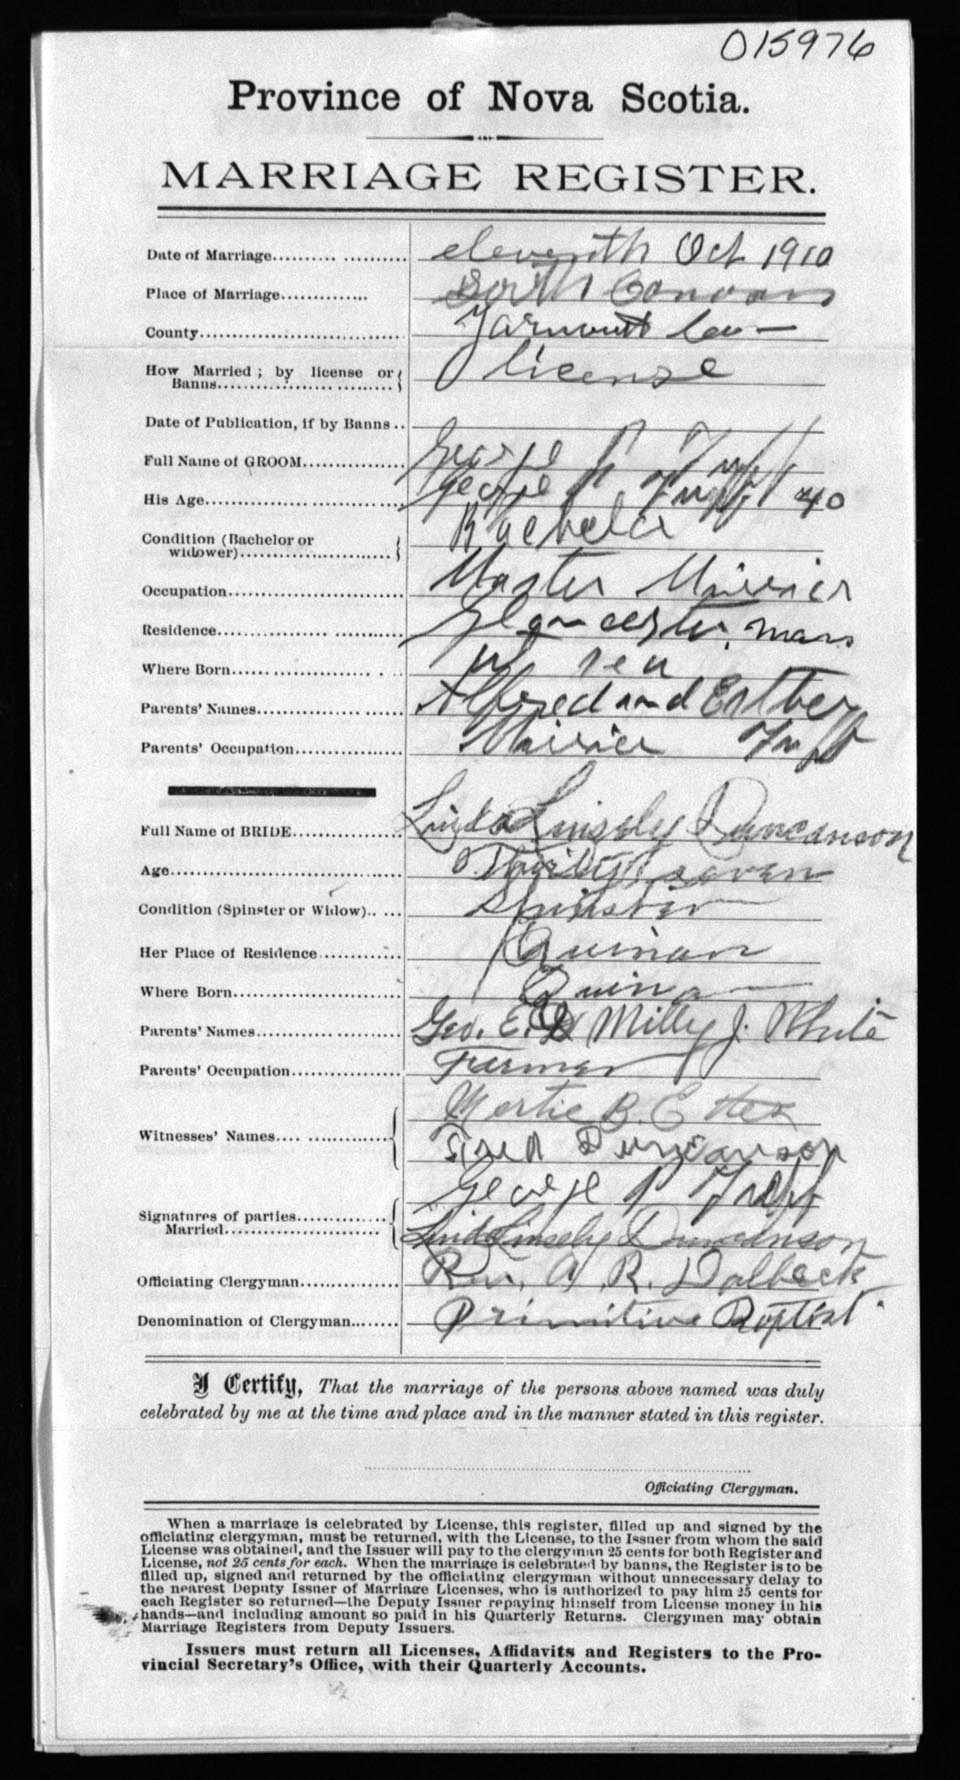 015976
Province of Nova Scotia.
MARRIAGE REGISTER.
Date of Marriage.......... ........... eleventh Oct 1910
Place of Marriage.............
County................................... Yarmouth Co
How Married ; by license or Banns.................... license
Date of Publication, if by Banns ..
Full Name of GROOM............... George
His Age................................... George 40
Condition (Bachelor or widower).......................... Bachelor
Occupation.............................. Master
Residence................................ Gloucester, Mass
Where Born.............................
Parents' Names........................ Alfred and Esther
Parents' Occupation.................
Full Name of BRIDE................ Linda Linsely Duncanson
Age........................................ Thirty seven
Condition (Spinster or Widow).. ... Spinster
Her Place of Residence............. Quinan
Where Born............................. Quinan
Parents' Names........................ Geo. E. & Milly J. White
Parents' Occupation................. Farmer
Witnesses' Names.... ............... Mertie B.
Duncanson
Signatures of parties Married................................ George P
Linda Linsely Duncanson
Officiating Clergyman............... Rev. A. R. Dalbeck
Denomination of Clergyman......... Primitive Baptist
I Certify, That the marriage of the persons above named was duly
celebrated by me at the time and place and in the manner stated in this register.
Officiating Clergyman.
When a marriage is celebrated by License, this register, filled up and signed by the
officiating clergyman, must be returned, with the License, to the Issuer from whom the said
License was obtained, and the Issuer will pay to the clergyman 25 cents for both Register and
License, not 25 cents for each. When the marriage is celebrated by banns, the Register is to be
filled up, signed and returned by the officiating clergyman without unnecessary delay to
the nearest Deputy Issuer of Marriage Licenses, who is authorized to pay him 25 cents for
each Register so returned—the Deputy Issuer repaying himself from License money in his
hands—and including amount so paid in his Quarterly Returns. Clergymen may obtain
Marriage Registers from Deputy Issuers.
Issuers must return all Licenses, Affidavits and Registers to the Pro-
vincial Secretary's Office, with their Quarterly Accounts.